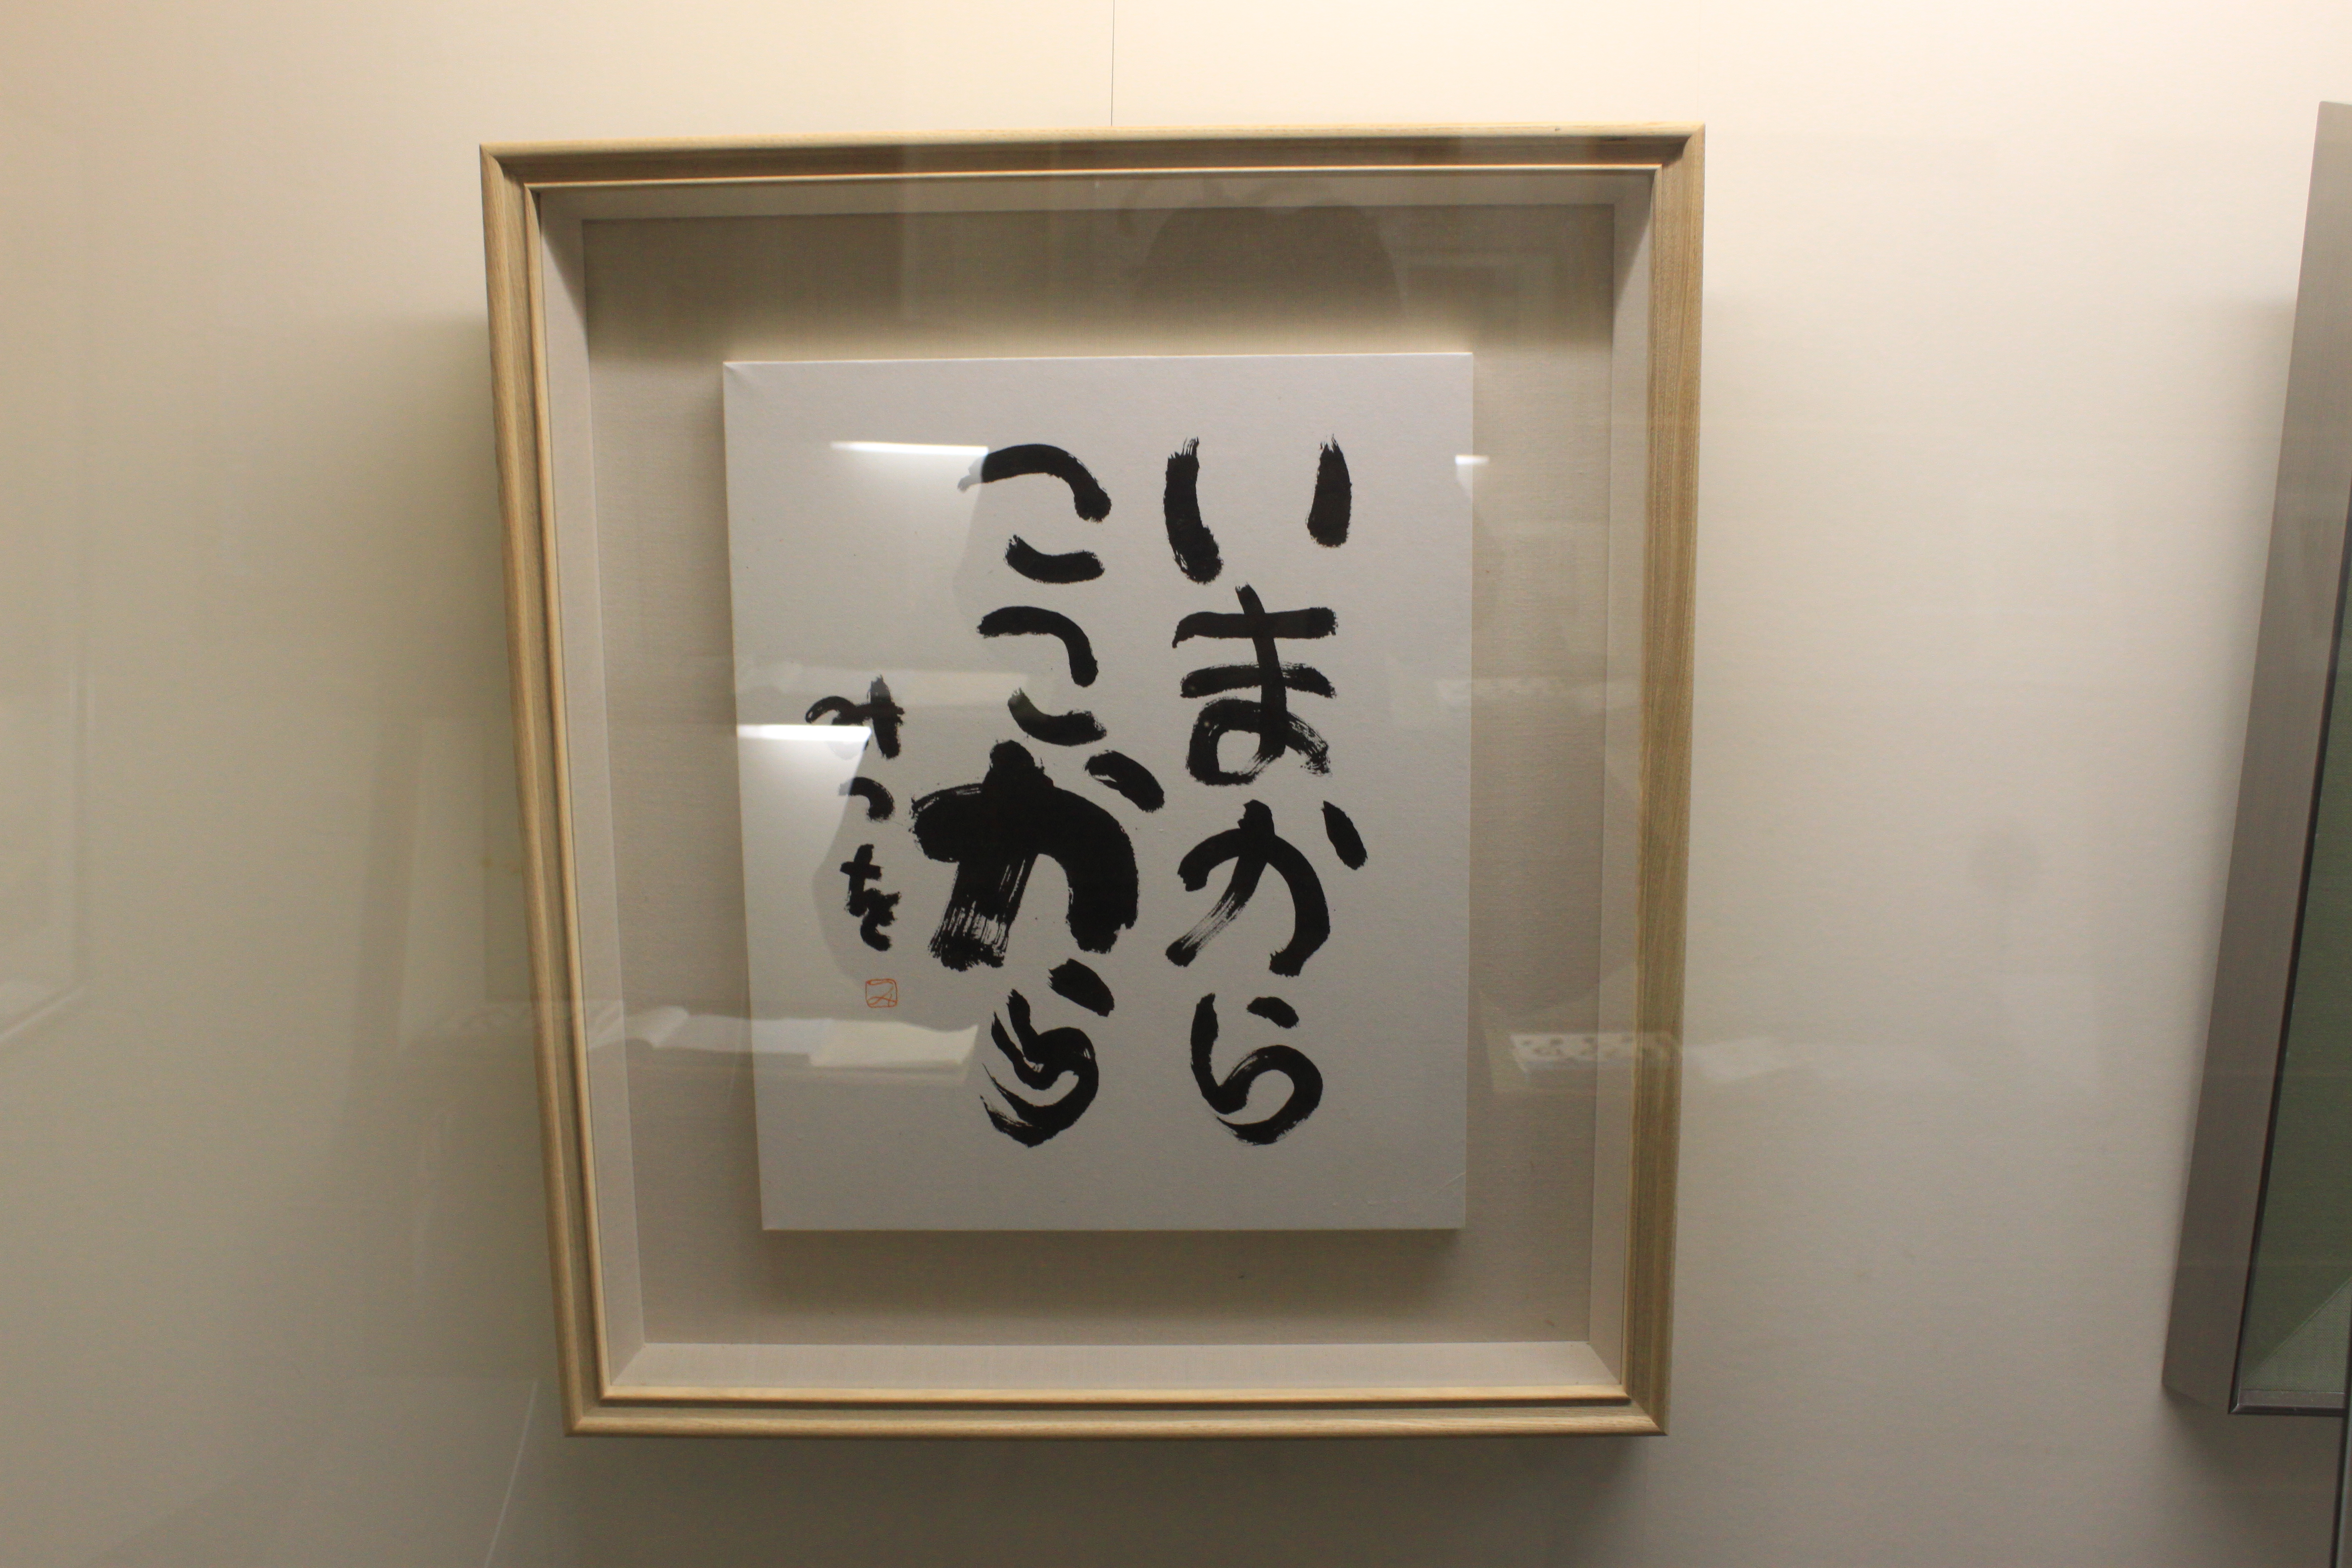 いまから
ここから
みつを